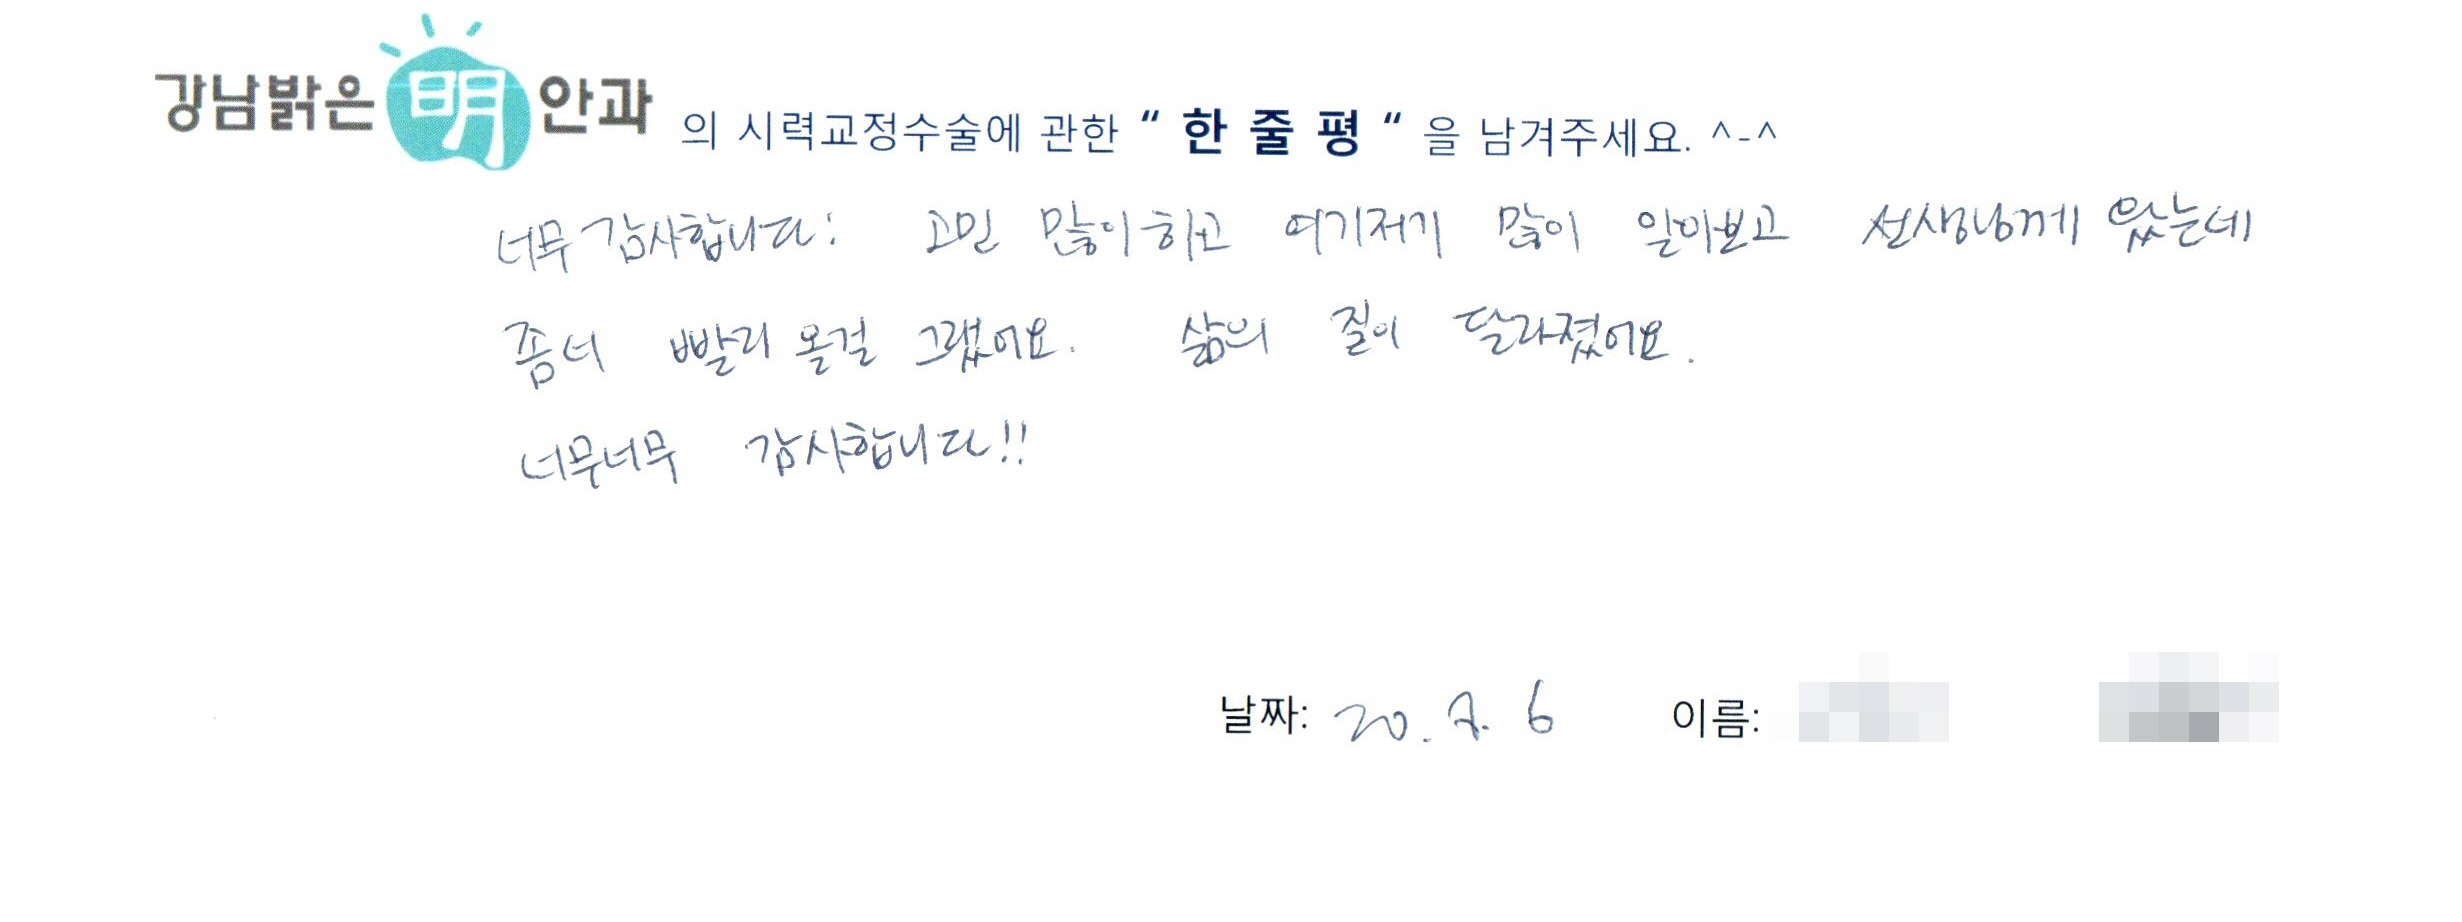 강남밝은明안과 의 시력교정수술에 관한 “ 한 줄 평 “ 을 남겨주세요. ^-^
너무 감사합니다! 고민 많이하고 여기저기 많이 알아보고 선생님께 왔는데
좀더 빨리 올걸 그랬어요. 삶의 질이 달라졌어요.
너무너무 감사합니다!!
날짜: 20. 7. 6 이름: